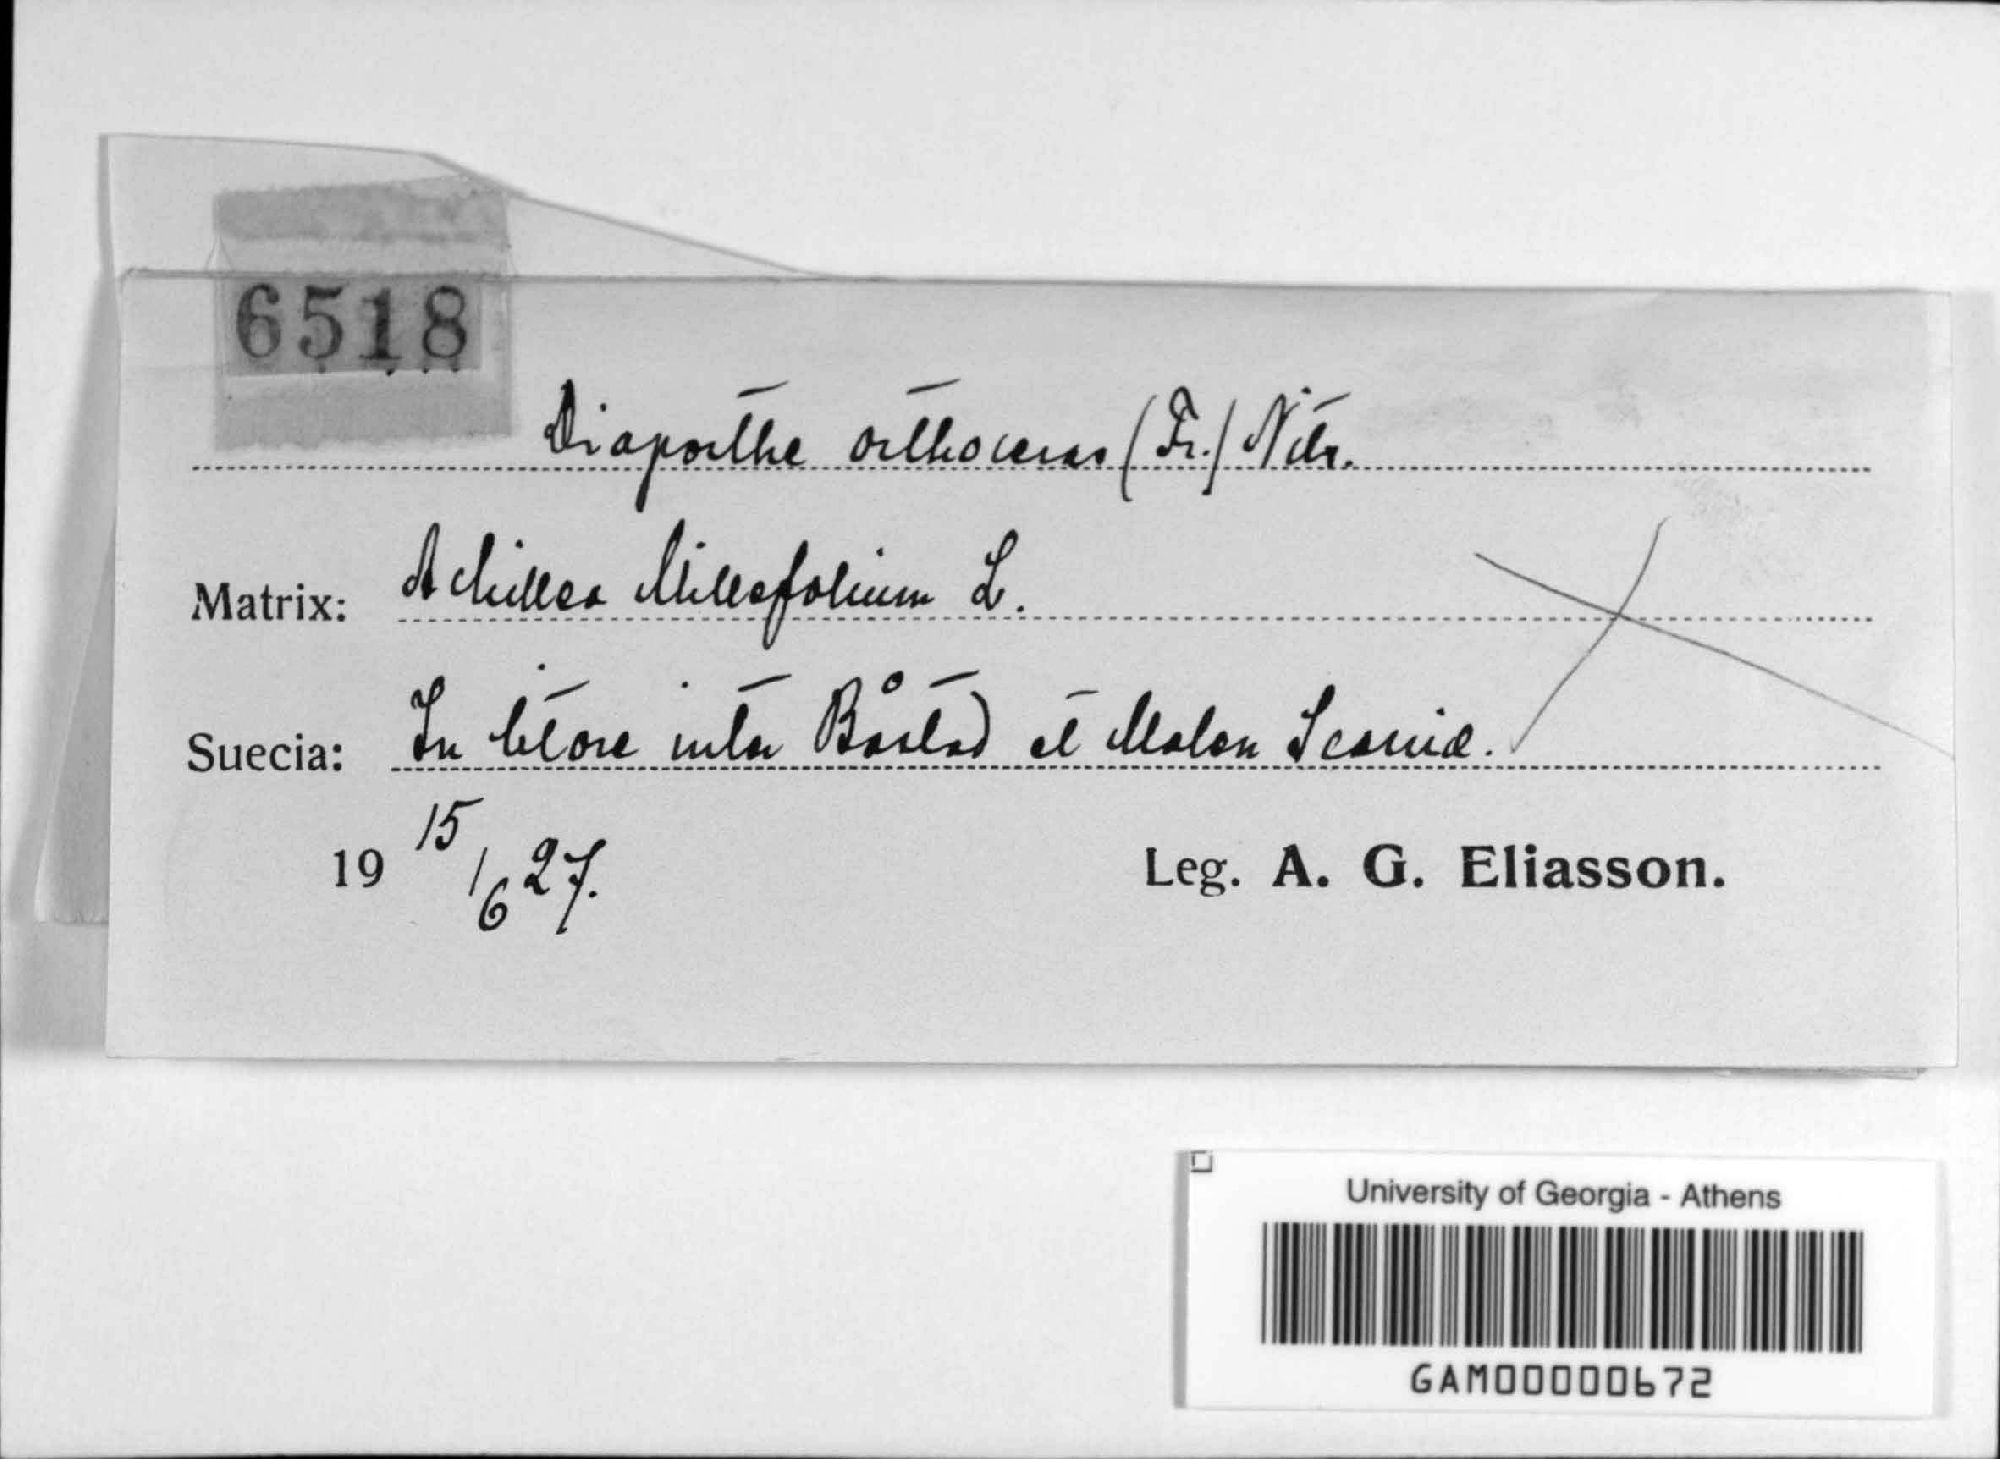 6518
Diaporthe orthoceras (Fr.) Nits.
Matrix: Achillea Millefolium L.
Suecia: In litore inter Båstad et Malen Scaniæ.
19 15/6 27.
Leg. A. G. Eliasson.
University of Georgia - Athens
GAM00000672